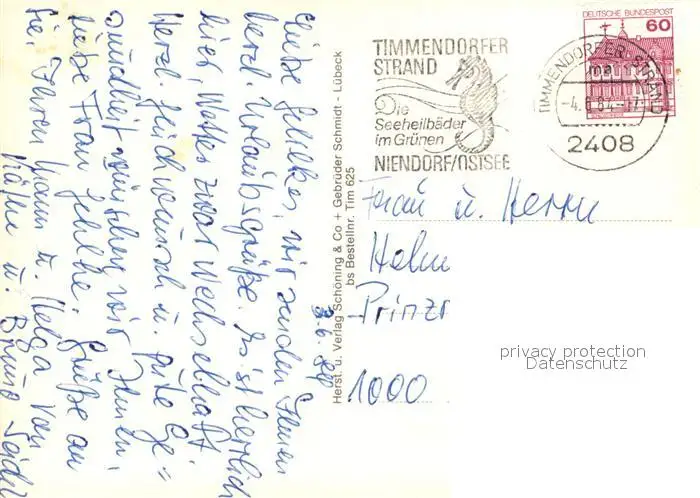 Liebe Gehelkes, wir senden Ihnen
herzl. Urlaubsgrüße. Es ist herrlich
hier, Wetter zwar wechselhaft.
Herzl. Glückwunsch u. gute Ge=
sundheit wünschen wir Ihnen,
liebe Frau Gehlke. Grüße an
Sie, Ihren Mann u. Helga von
Käthe u. Bruno
3.6.84
Herst. u. Verlag Schöning & Co + Gebrüder Schmidt - Lübeck
bs Bestellnr. Tim 625
TIMMENDORFER
STRAND
Die
Seeheilbäder
im Grünen
NIENDORF/OSTSEE
DEUTSCHE BUNDESPOST
60
TIMMENDORFER STRAND
2408
Frau u. Herrn
Helm
Prinzr
1000
privacy protection
Datenschutz